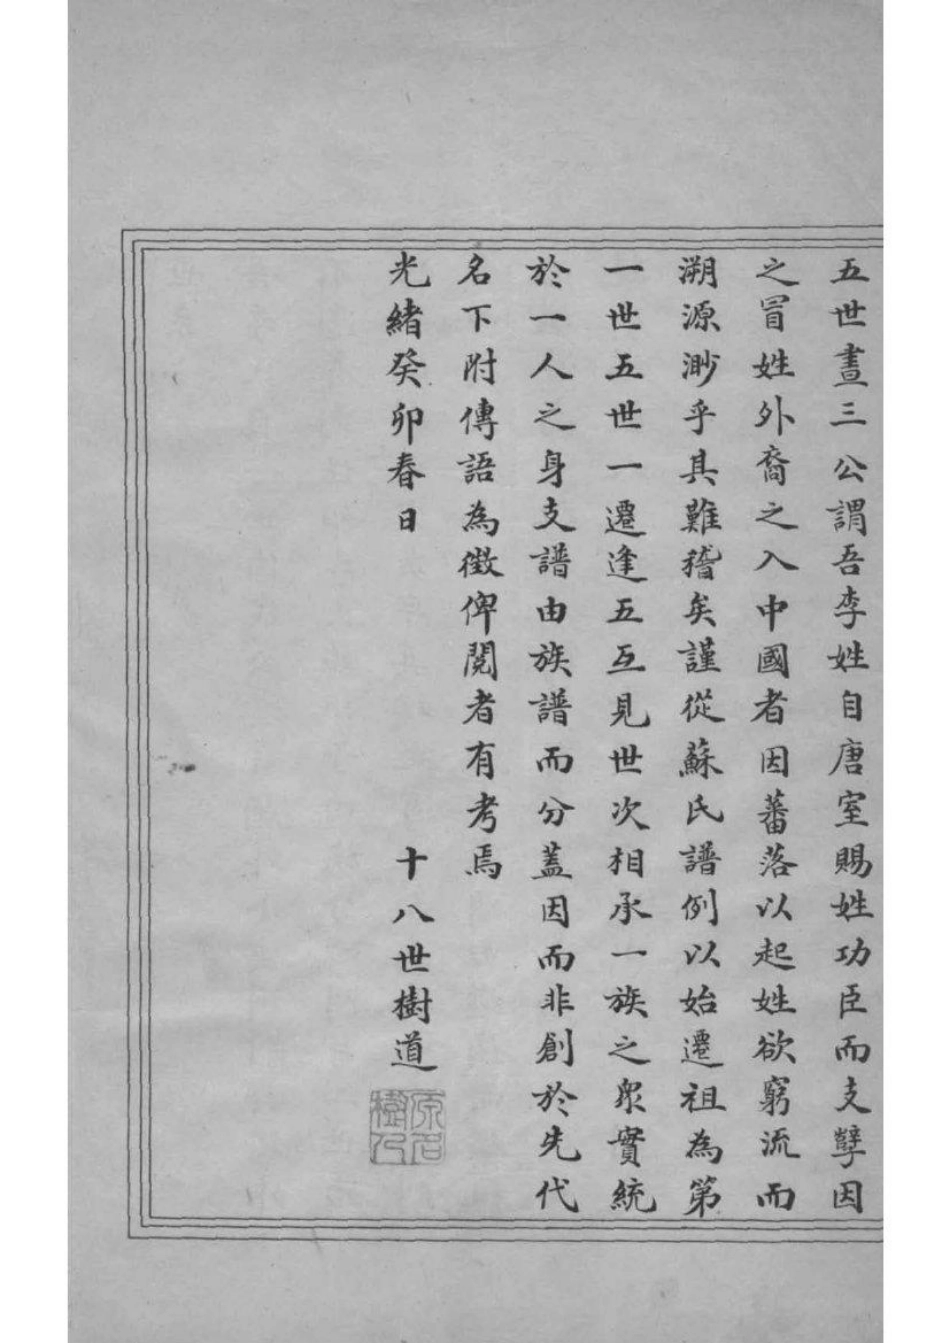 五世畫三公謂吾李姓自唐室賜姓功臣而支孽因
之冒姓外裔之入中國者因蕃落以起姓欲窮流而
溯源渺乎其難稽矣謹從蘇氏譜例以始遷祖為第
一世五世一遷逢五互見世次相承一族之衆實統
於一人之身支譜由族譜而分蓋因而非創於先代
名下附傳語為徵俾閱者有考焉
光緒癸卯春日
十八世樹道
原名樹人